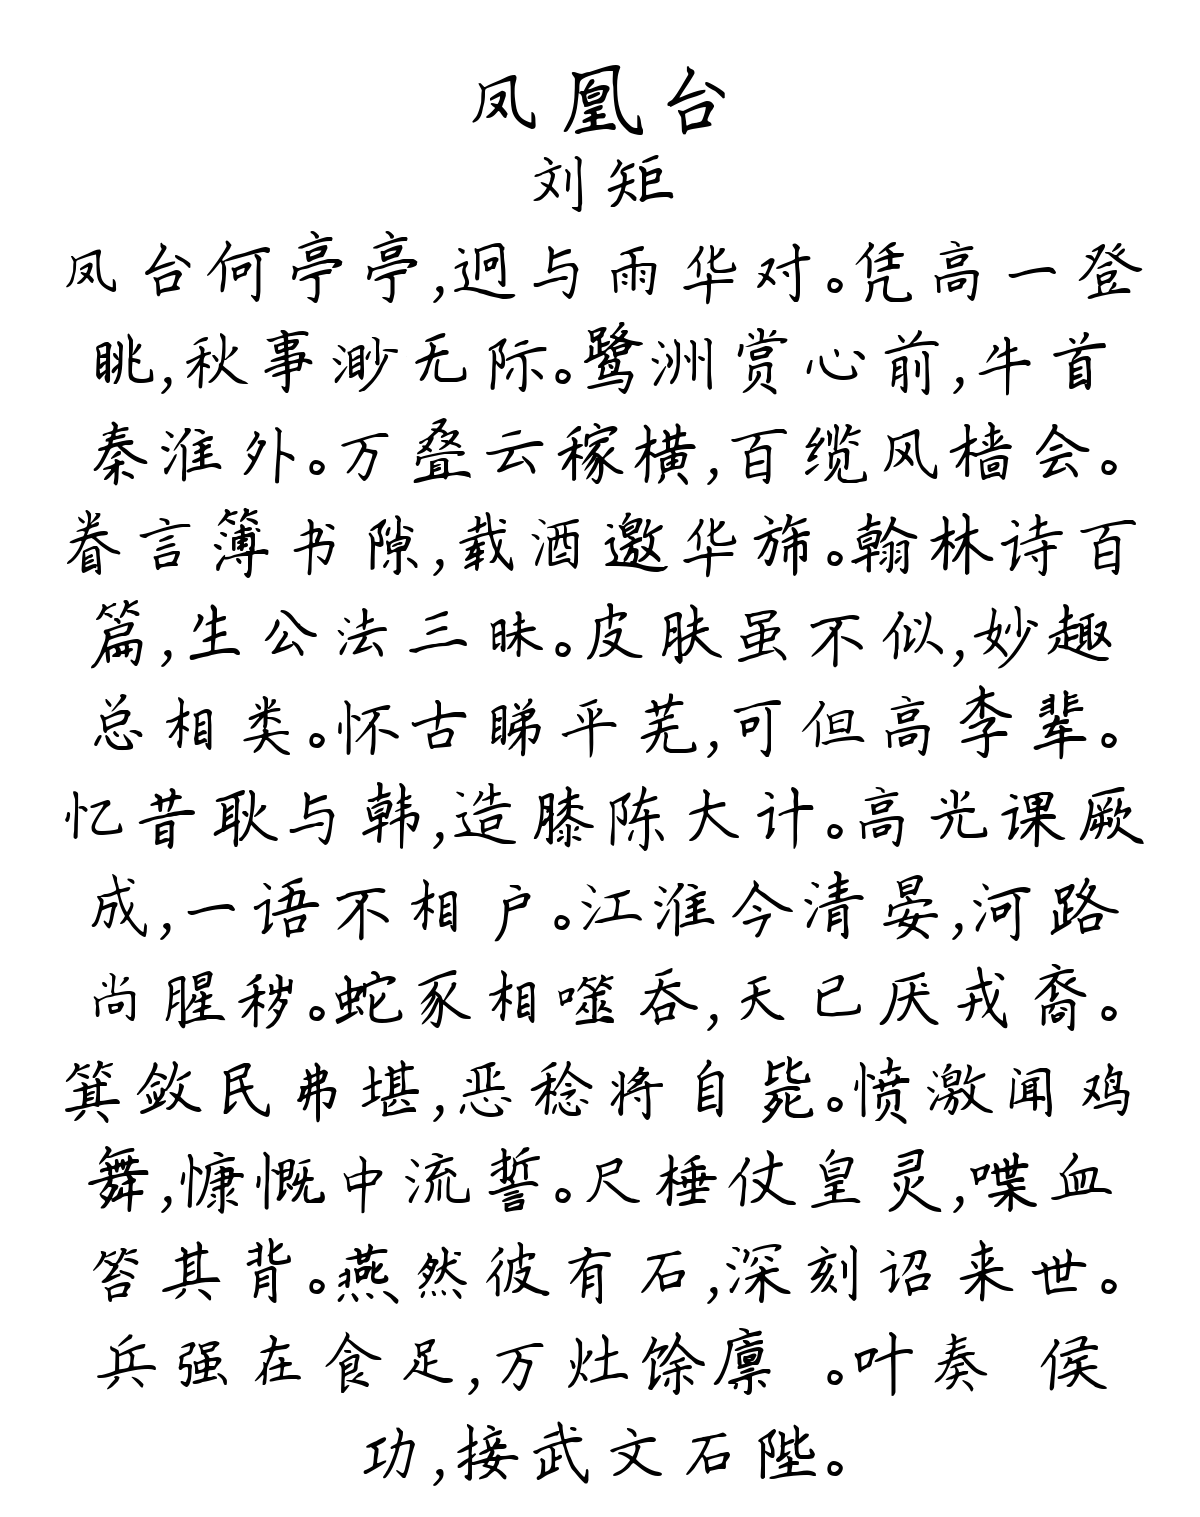 凤凰台
刘矩
凤台何亭亭,迥与雨华对。凭高一登
眺,秋事渺无际。鹭洲赏心前,牛首
秦淮外。万叠云稼横,百缆风樯会。
眷言簿书隙,载酒邀华旆。翰林诗百
篇,生公法三昧。皮肤虽不似,妙趣
总相类。怀古睇平芜,可但高李辈。
忆昔耿与韩,造膝陈大计。高光课厥
成,一语不相户。江淮今清晏,河路
尚腥秽。蛇豕相噬吞,天已厌戎裔。
箕敛民弗堪,恶稔将自毙。愤激闻鸡
舞,慷慨中流誓。尺棰仗皇灵,喋血
笞其背。燕然彼有石,深刻诏来世。
兵强在食足,万灶馀廪 。叶奏 侯
功,接武文石陛。